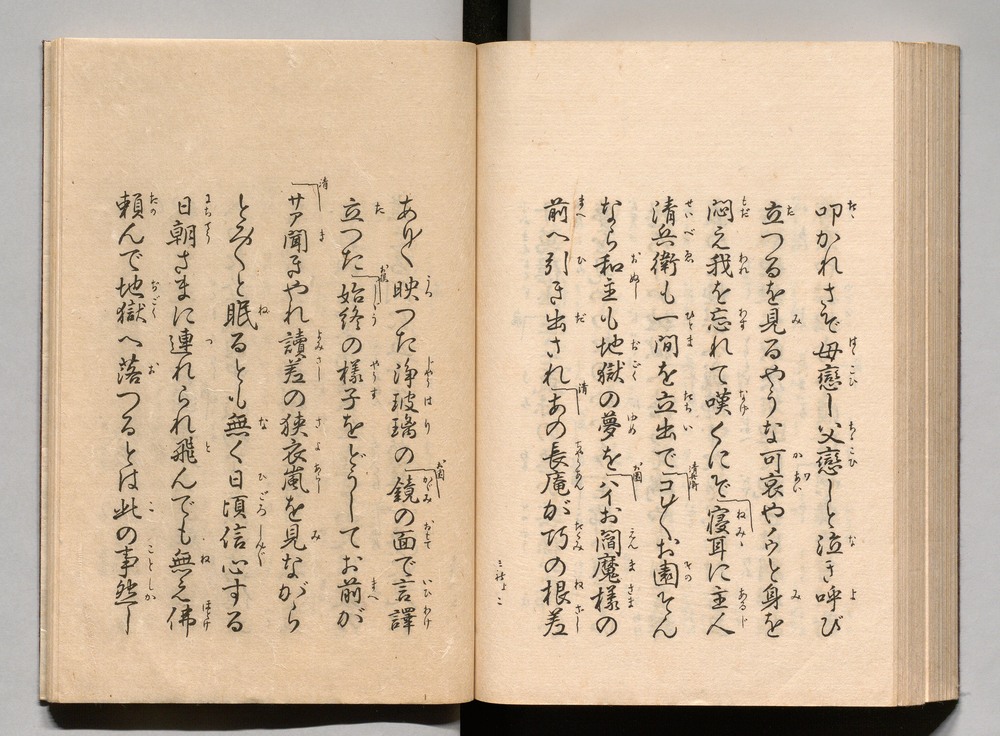 叩かれさで母戀し父戀しと泣き呼び
立つるを見るやうな可哀やなうと身を
悶え我を忘れて嘆くにぞ寝耳に主人
清兵衛も一間を立出でコレ〳〵お園そん
なら和主も地獄の夢をハイお閻魔様の
前へ引き出されあの長庵が巧の根差
あり〳〵映つた浄玻璃の鏡の面で言譯
立つた始終の様子をどうしてお前が
サア聞きやれ讀差の狭衣嵐を見ながら
とろ〳〵と眠るとも無く日頃信心する
日朝さまに連れられ飛んでも無え佛
頼んで地獄へ落つるとは此の事然し